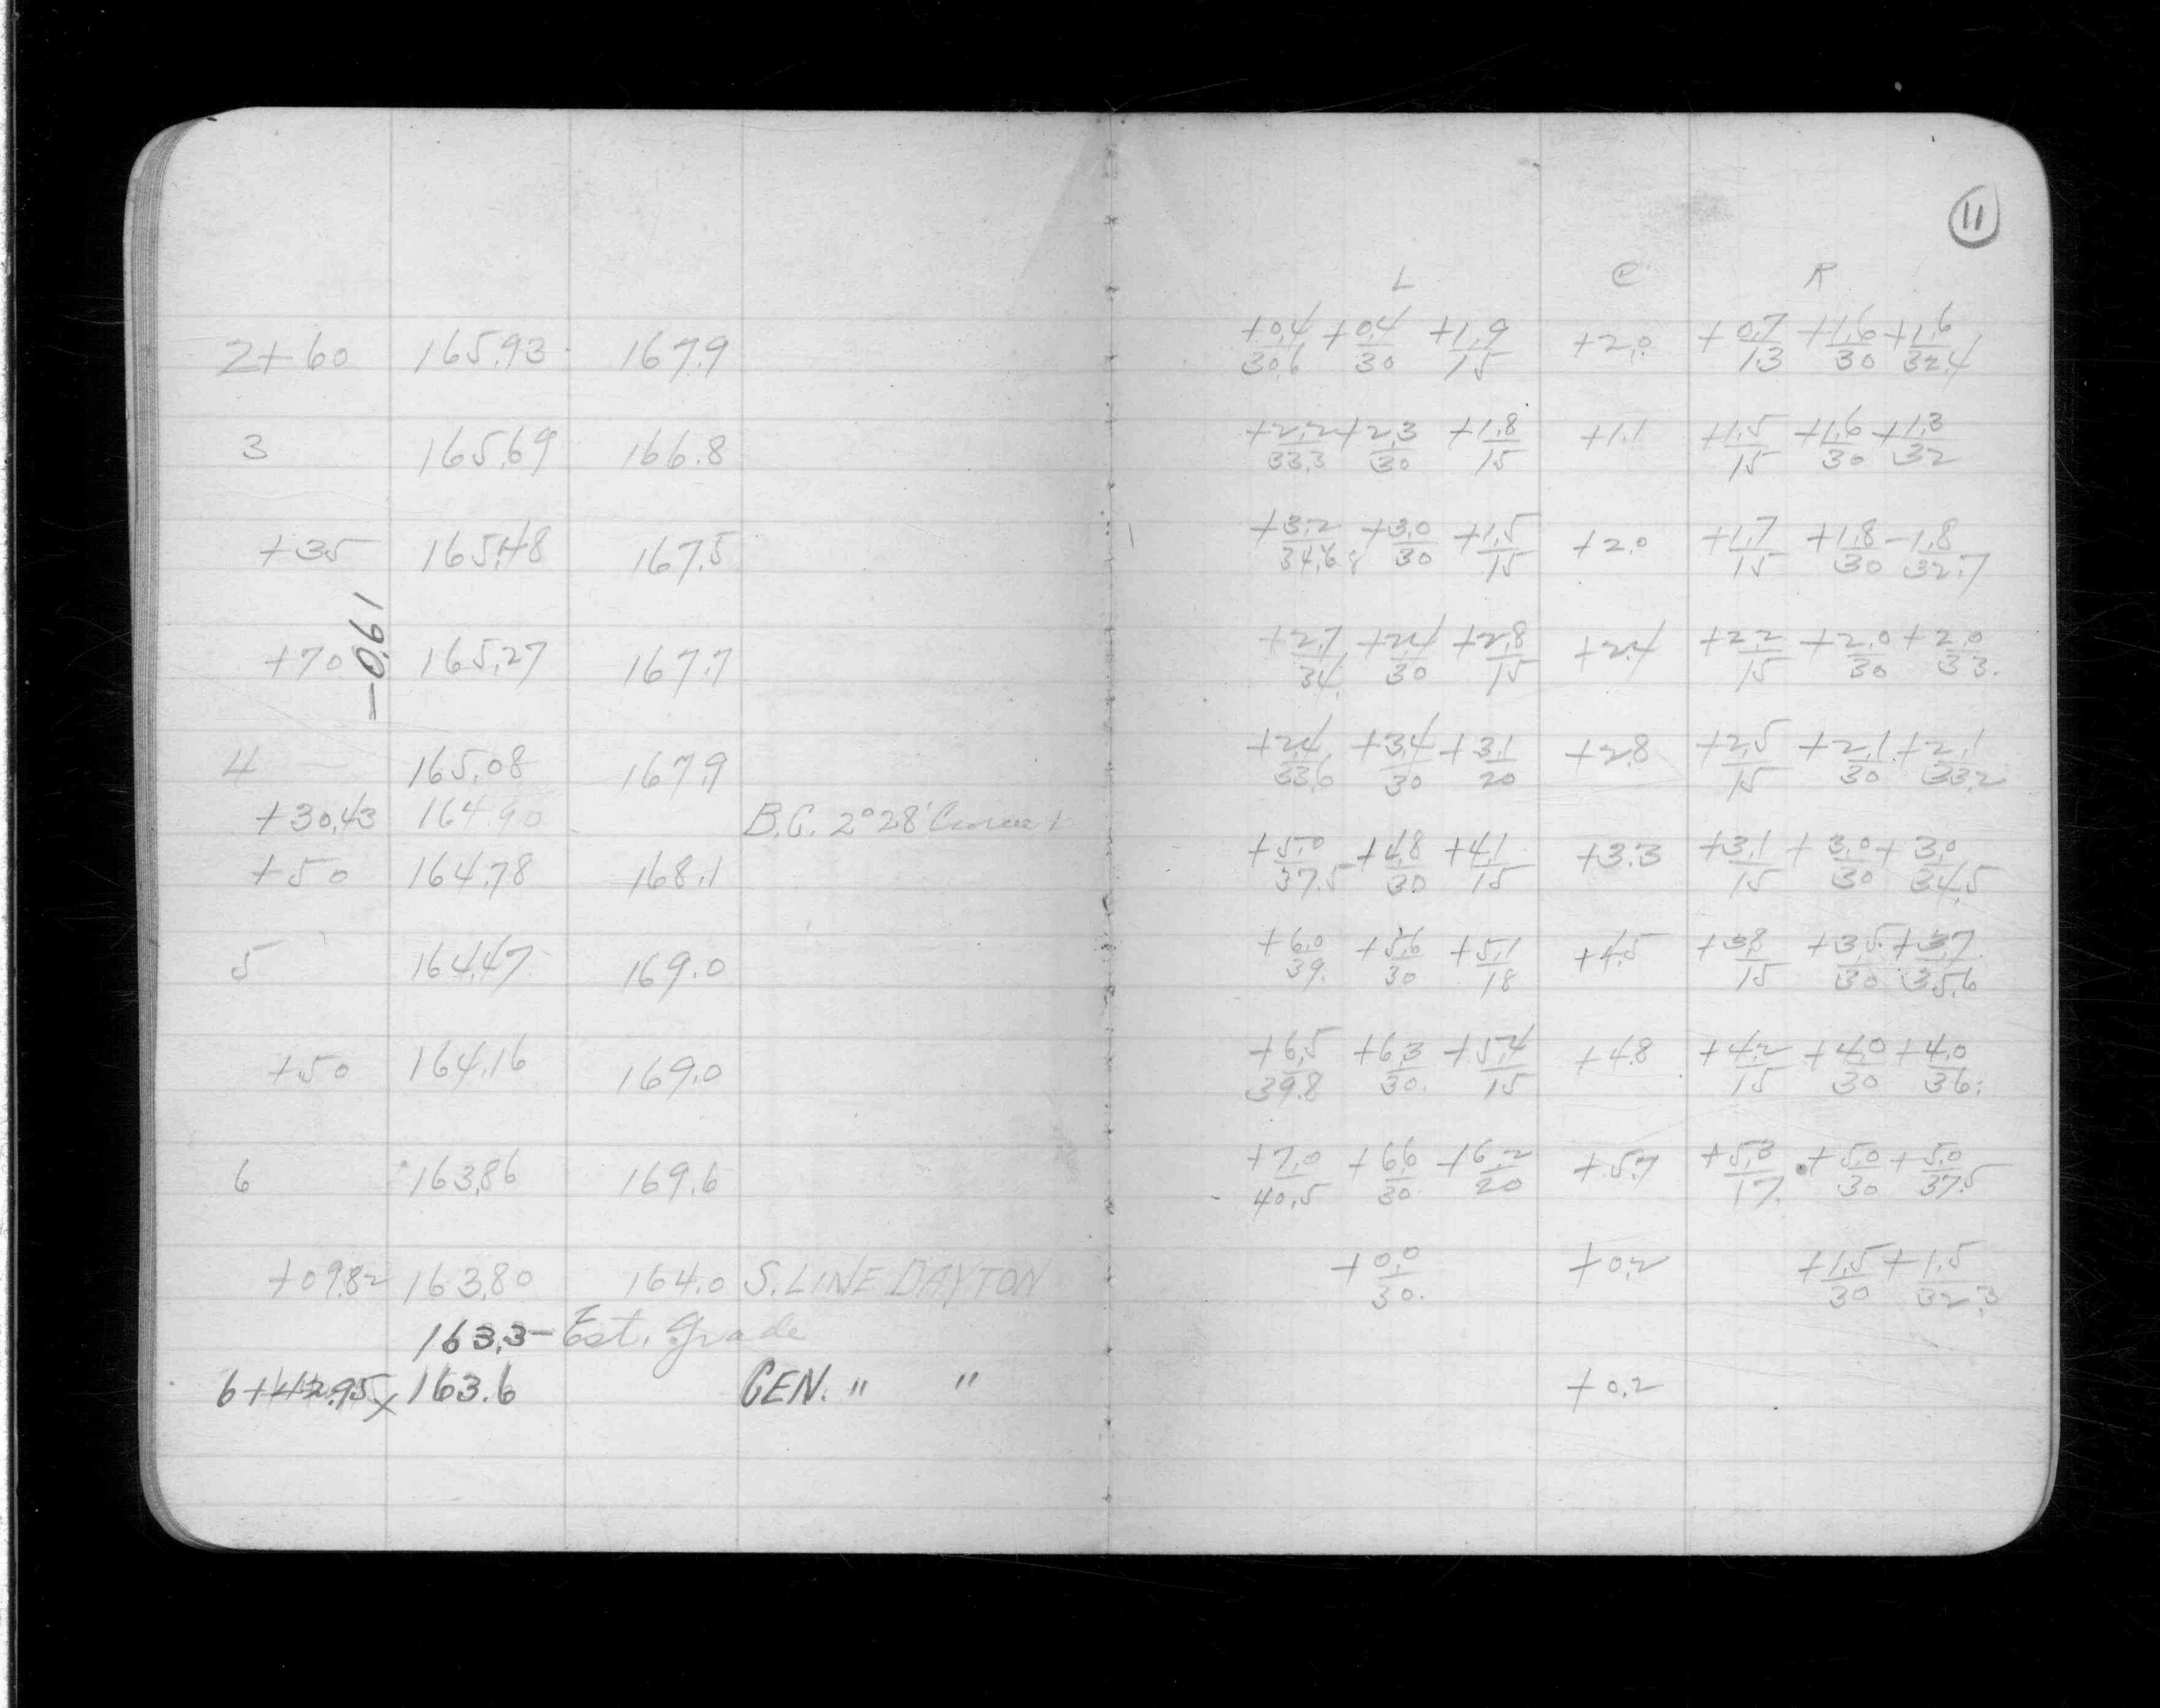 11
L C R
2+60 165.93 167.9 +0.4/30.6 +0.4/30 +1.9/15 +2.0 +0.7/13 +1.6/30 +1.6/32.4
3 165.69 166.8 +2.2/33.3 +2.3/30 +1.8/15 +1.1 +1.5/15 +1.6/30 +1.3/32
+35 165.48 167.5 +3.2/34.8 +3.0/30 +1.5/15 +2.0 +1.7/15 +1.8/30 -1.8/32.7
-0.61
+70 165.27 167.7 +2.7/34. +2.4/30 +2.8/15 +2.4 +2.2/15 +2.0/30 +2.0/33.
4 165.08 167.9 +2.4/33.6 +3.4/30 +3.1/20 +2.8 +2.5/15 +2.1/30 +2.1/33.2
+30.43 164.90 B.C. 2°28' Curve
+50 164.78 168.1 +5.0/37.5 +4.8/30 +4.1/15 +3.3 +3.1/15 +3.0/30 +3.0/34.5
5 164.47 169.0 +6.0/39. +5.6/30 +5.1/18 +4.5 +3.8/15 +3.5/30 +3.7/35.6
+50 164.16 169.0 +6.5/39.8 +6.3/30. +5.4/15 +4.8 +4.2/15 +4.0/30 +4.0/36.
6 163.86 169.6 +7.0/40.5 +6.6/30. +6.2/20 +5.7 +5.3/17. +5.0/30 +5.0/37.5
+09.82 163.80 164.0 S. LINE DAYTON +0.0/30. +0.2 +1.5/30 +1.5/32.3
163.3- Est. Grade
6+42.95 x 163.6 CEN. " " +0.2